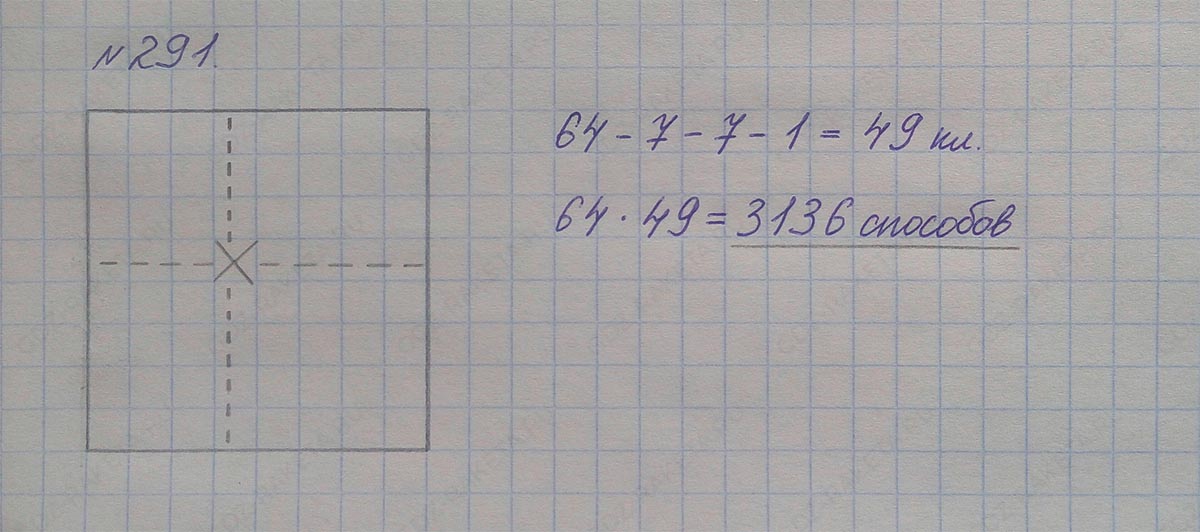 №291.
64 - 7 - 7 - 1 = 49 кл.
64 · 49 = 3136 способов